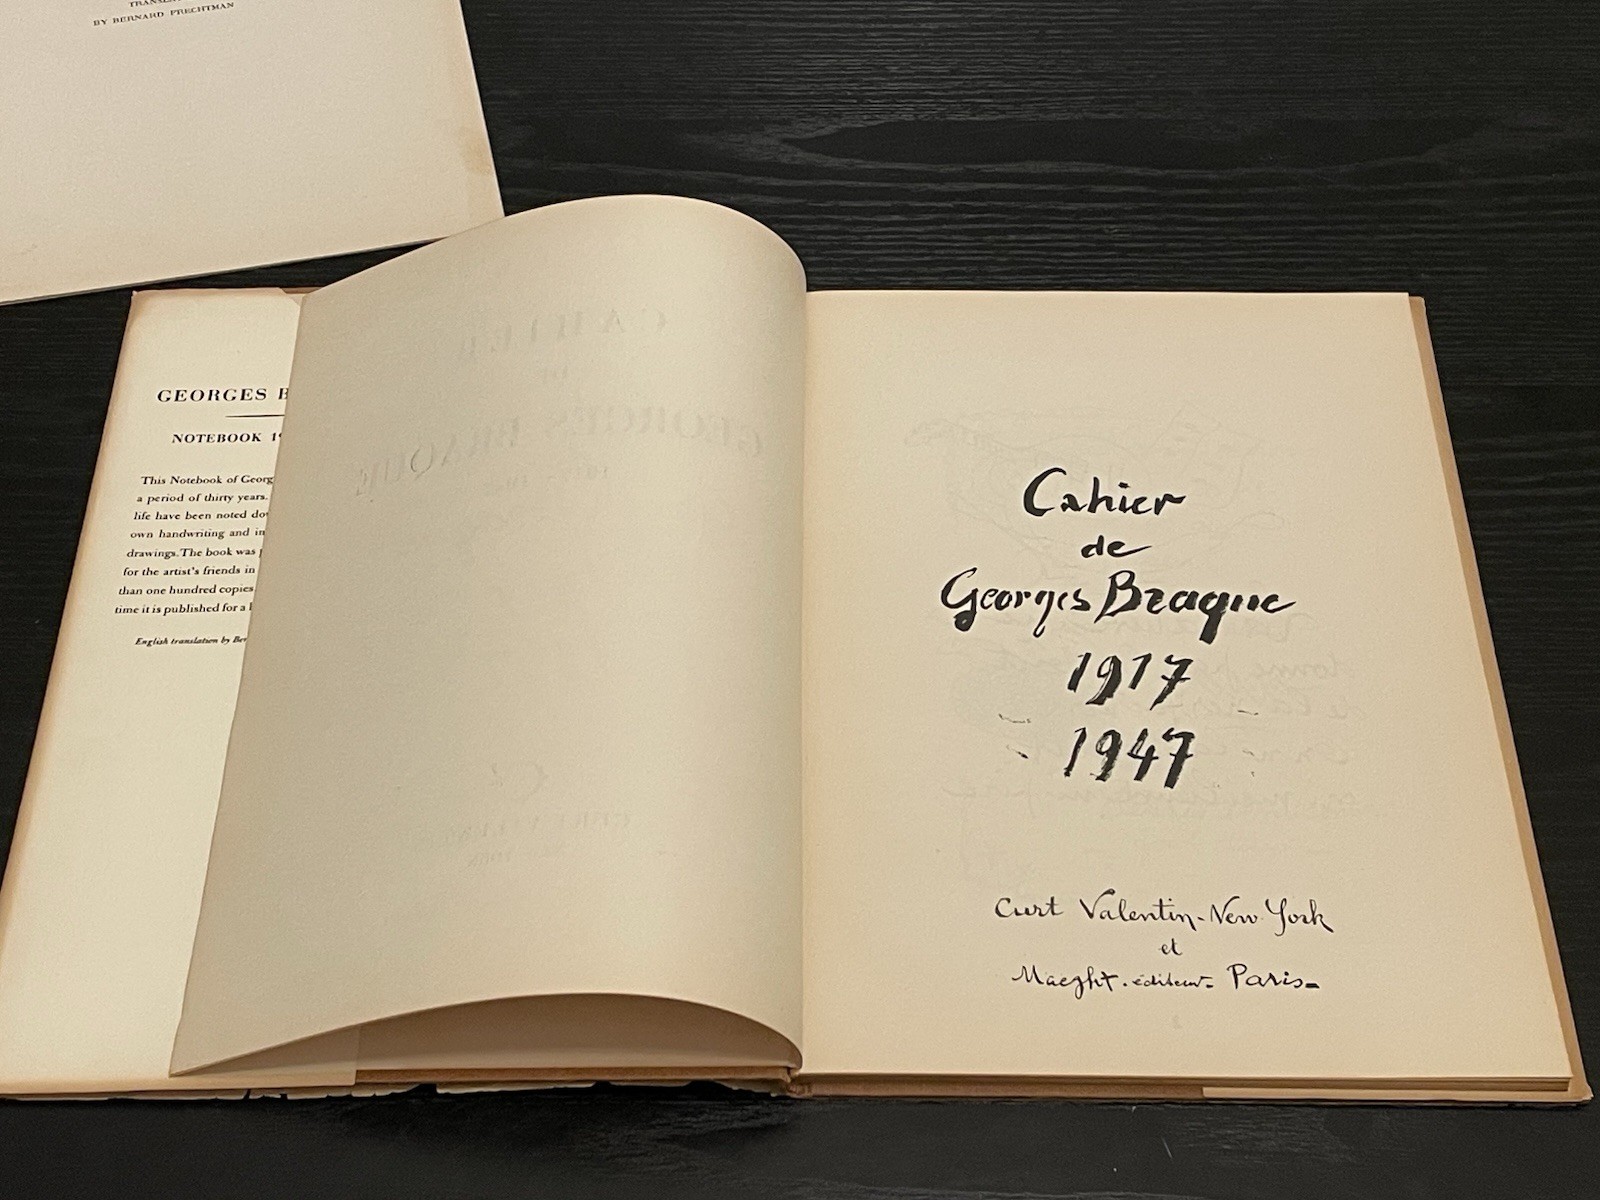 BY BERNARD FRECHTMAN
GEORGES
NOTEBOOK
This Notebook of
a period of thirty years.
life have been noted
own handwriting and in
drawings. The book was
for the artist's friends in
than one hundred copies
time it is published for a
English translation by
CAHIER
DE
GEORGES BRAQUE
Cahier
de
Georges Braque
1917
1947
Curt Valentin - New York
et
Maeght . éditeur - Paris -